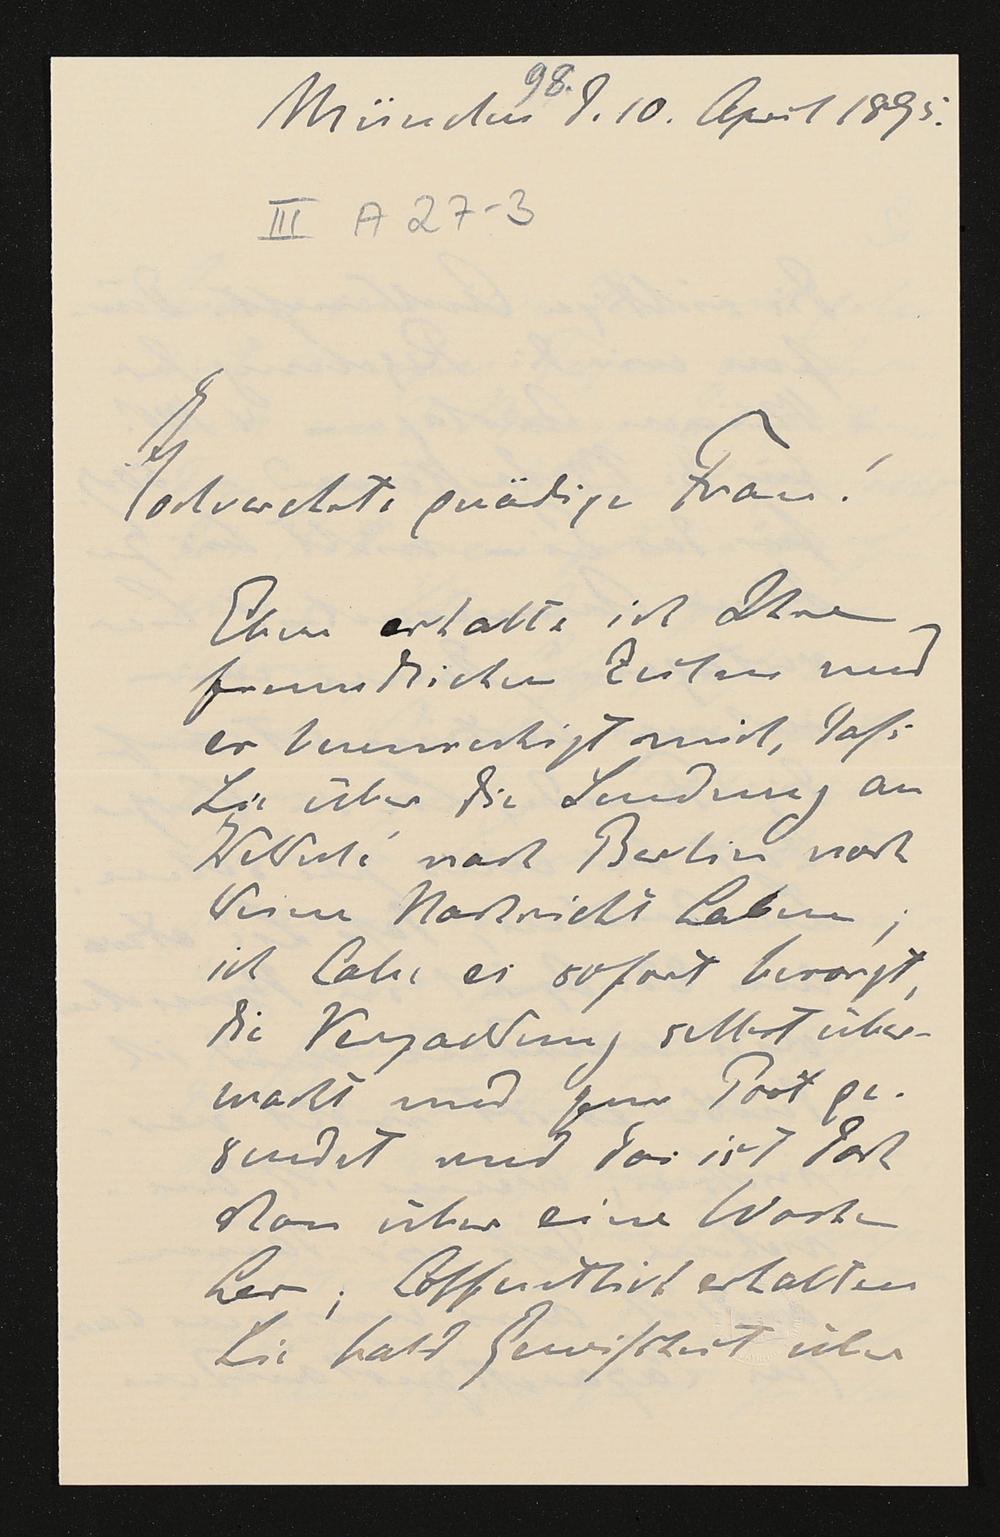 98.
München d. 10. April 1895.
III A 27-3
Hochverehrte gnädige Frau!
Eben erhalte ich Ihre
freundlichen Zeilen und
es beunruhigt mich, daß
Sie über die Sendung an
nach Berlin noch
keine Nachricht haben;
ich habe es sofort besorgt,
die Verpackung selbst über-
wacht und zur Post ge-
sendet und das ist doch
schon über eine Woche
her; hoffentlich erhalten
Sie bald Gewißheit über